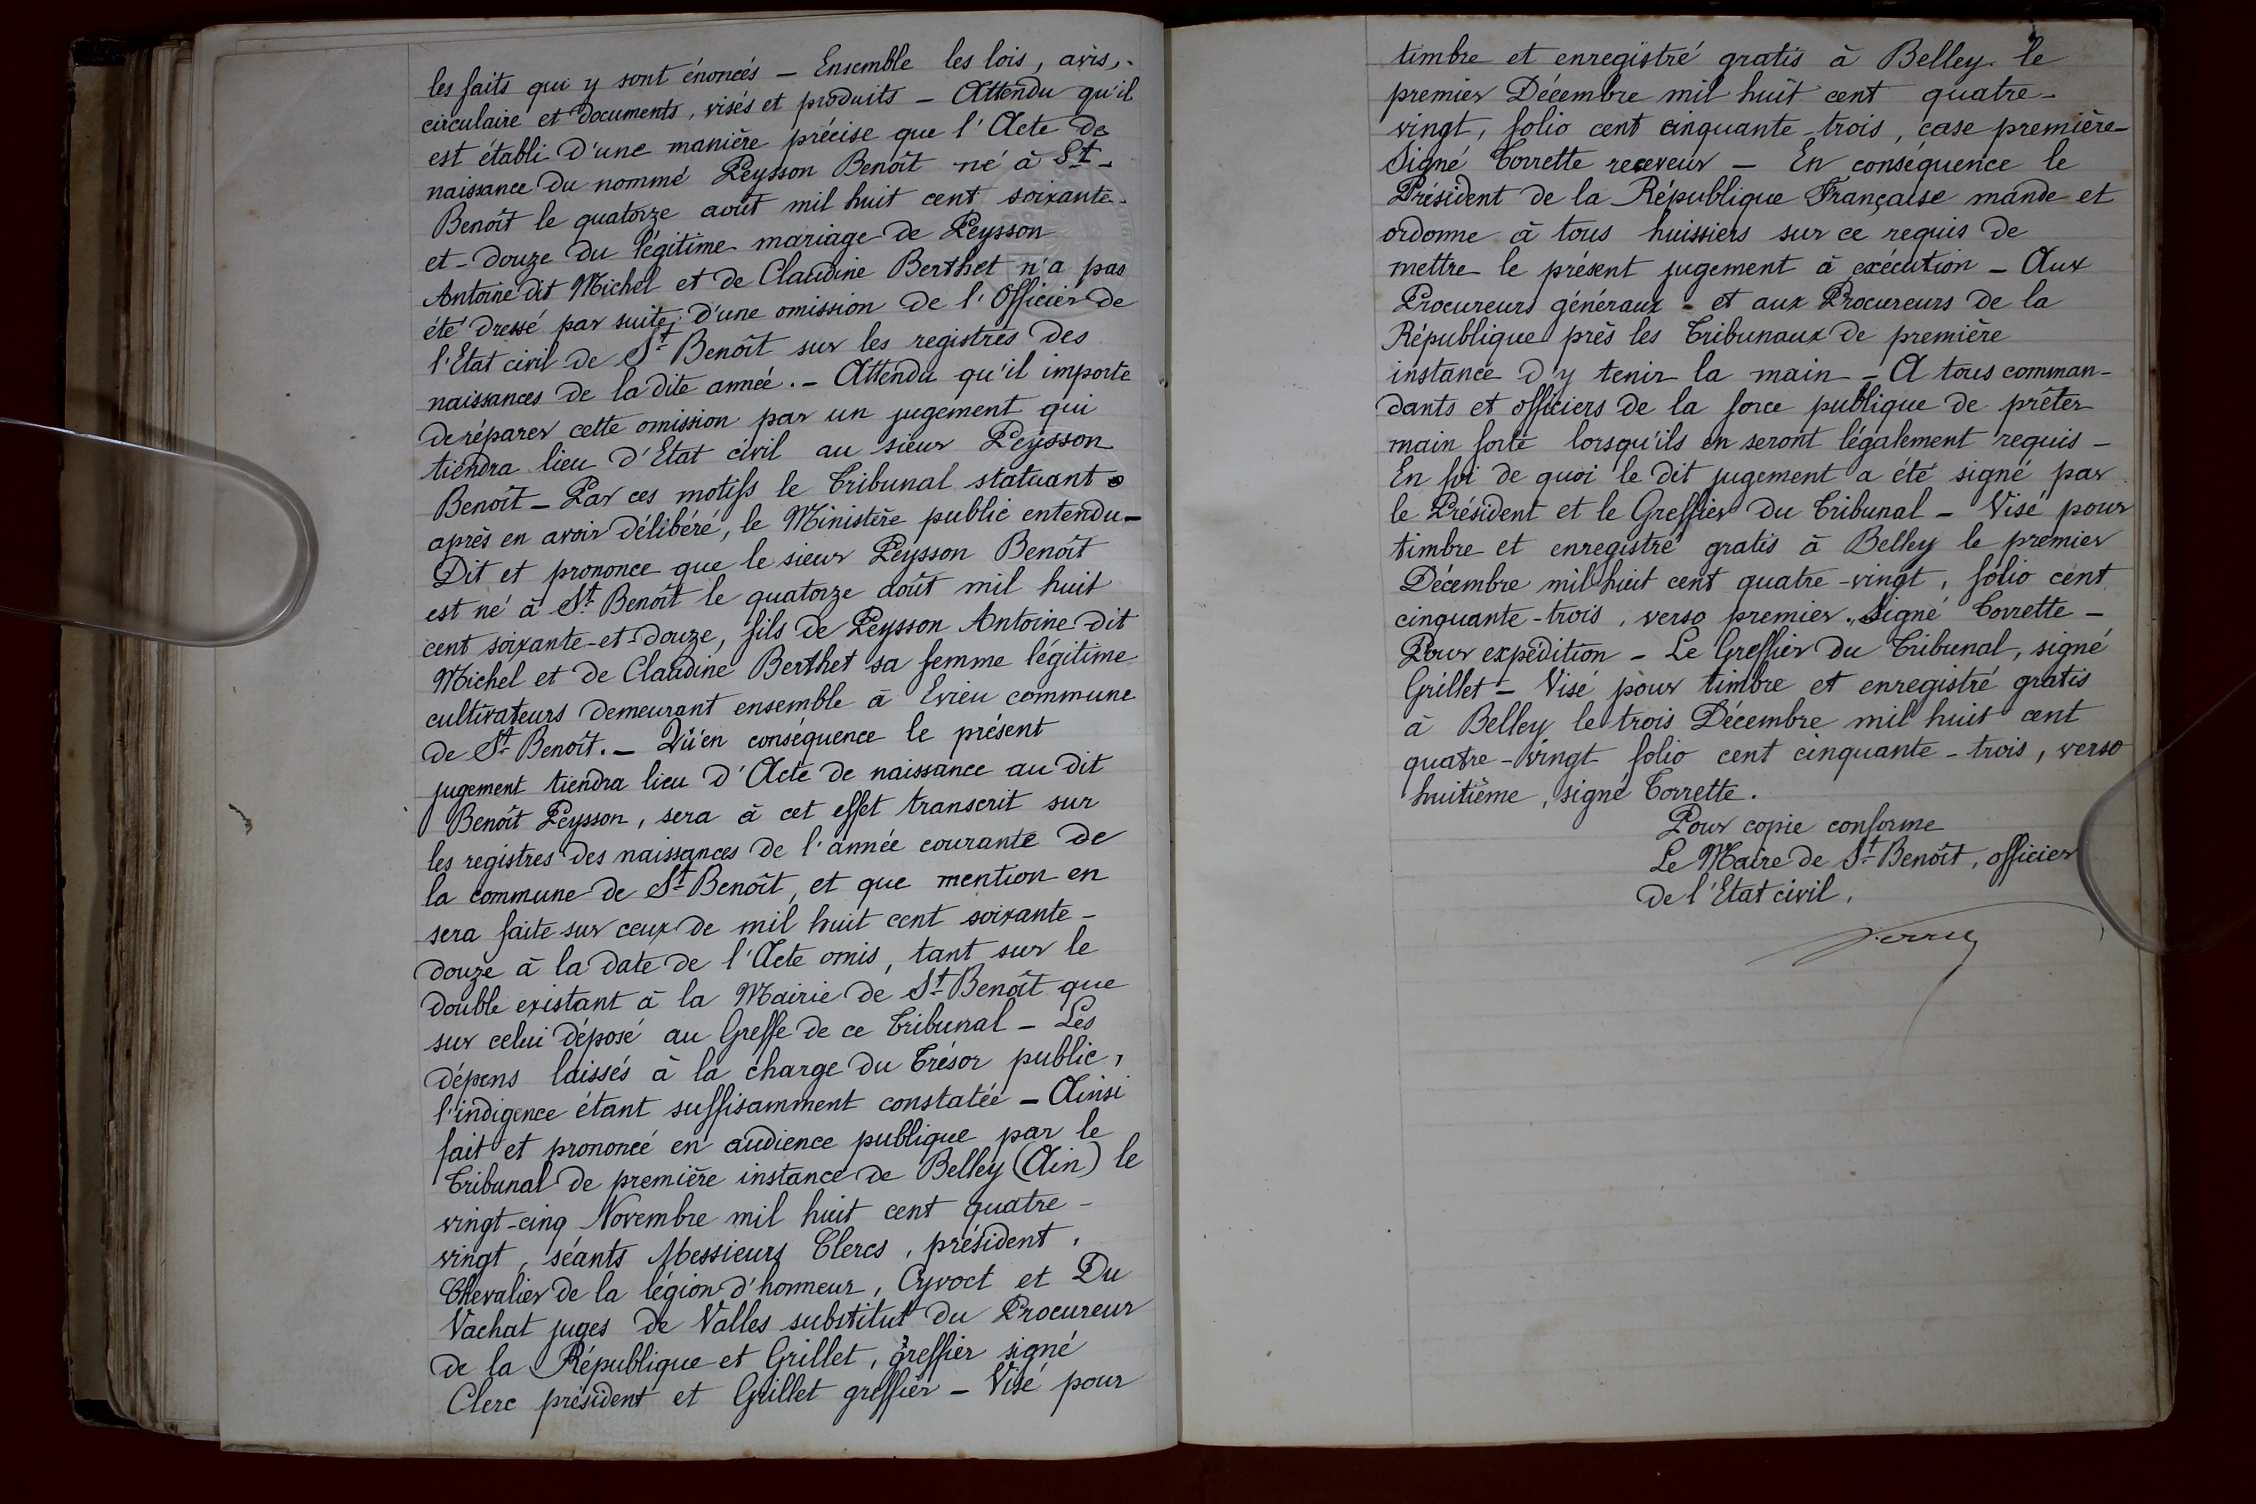 les faits qui y sont énoncés – Ensemble les lois, avis,
circulaire et documents, visés et produits – Attendu qu'il
est établi d'une manière précise que l'Acte de
naissance du nommé Peysson Benoît né à St-
Benoît le quatorze août mil huit cent soixante-
et-douze du légitime mariage de Peysson
Antoine dit Michel et de Claudine Berthet n'a pas
été dressé par suite d'une omission de l'Officier de
l'Etat civil de St Benoît sur les registres des
naissances de la dite année. – Attendu qu'il importe
de réparer cette omission par un jugement qui
tiendra lieu d'Etat civil au sieur Peysson
Benoît – Par ces motifs le Tribunal statuant
après en avoir délibéré, le Ministère public entendu –
Dit et prononce que le sieur Peysson Benoît
est né à St Benoît le quatorze août mil huit
cent soixante-et-douze, fils de Peysson Antoine dit
Michel et de Claudine Berthet sa femme légitime
cultivateurs demeurant ensemble à Evieu commune
de St Benoît. – Qu'en conséquence le présent
jugement tiendra lieu d'Acte de naissance au dit
Benoît Peysson, sera à cet effet transcrit sur
les registres des naissances de l'année courante de
la commune de St Benoît, et que mention en
sera faite sur ceux de mil huit cent soixante-
douze à la date de l'Acte omis, tant sur le
double existant à la Mairie de St Benoît que
sur celui déposé au Greffe de ce Tribunal – Les
dépens laissés à la charge du Trésor public,
l'indigence étant suffisamment constatée – Ainsi
fait et prononcé en audience publique par le
Tribunal de première instance de Belley (Ain) le
vingt-cinq Novembre mil huit cent quatre-
vingt, séants Messieurs Clercs, président,
Chevalier de la légion d'honneur, Cyvoct et Du
Vachat juges de Valles substitut du Procureur
de la République et Grillet, greffier signé
Clerc président et Grillet greffier – Visé pour
timbre et enregistré gratis à Belley le
premier Décembre mil huit cent quatre-
vingt, folio cent cinquante-trois, case première –
Signé Torrette receveur – En conséquence le
Président de la République Française mande et
ordonne à tous huissiers sur ce requis de
mettre le présent jugement à exécution – Aux
Procureurs généraux - et aux Procureurs de la
République près les Tribunaux de première
instance d'y tenir la main – A tous comman-
dants et officiers de la force publique de prêter
main forte lorsqu'ils en seront légalement requis –
En foi de quoi le dit jugement a été signé par
le Président et le Greffier du Tribunal – Visé pour
timbre et enregistré gratis à Belley le premier
Décembre mil huit cent quatre-vingt, folio cent
cinquante-trois, verso premier. Signé Torrette –
Pour expédition – Le Greffier du Tribunal, signé
Grillet – Visé pour timbre et enregistré gratis
à Belley le trois Décembre mil huit cent
quatre-vingt folio cent cinquante-trois, verso
huitième, signé Torrette.
Pour copie conforme
Le Maire de St Benoît, officier
de l'Etat civil.